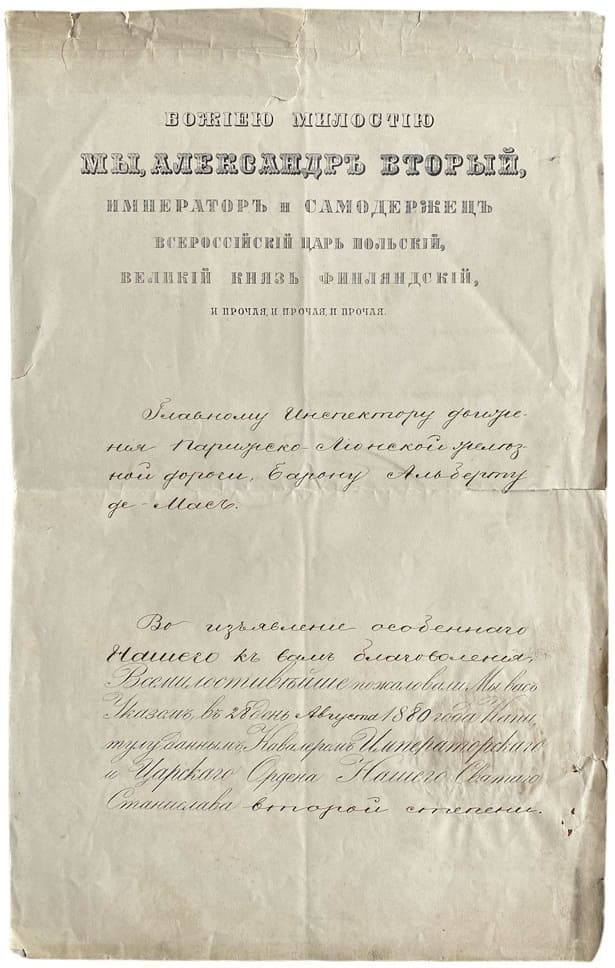 БОЖІЕЮ МИЛОСТІЮ
МЫ, АЛЕКСАНДРЪ ВТОРЫЙ,
ИМПЕРАТОРЪ и САМОДЕРЖЕЦЪ
ВСЕРОССІЙСКІЙ ЦАРЬ ПОЛЬСКІЙ,
ВЕЛИКІЙ КНЯЗЬ ФИНЛЯНДСКІЙ,
И ПРОЧАЯ, И ПРОЧАЯ, И ПРОЧАЯ.
Главному Инспектору движе-
нія Парижско-Ліонской желѣз-
ной дороги, Барону Альберту
де-Масъ.
Во изъявленіе особеннаго
Нашего къ вамъ благоволенія,
Всемилостивѣйше пожаловали Мы васъ
Указомъ, въ 28 день Августа 1880 года Капи
тулу даннымъ, Кавалеромъ Императорскаго
и Царскаго Ордена Нашего Святаго
Станислава второй степени.